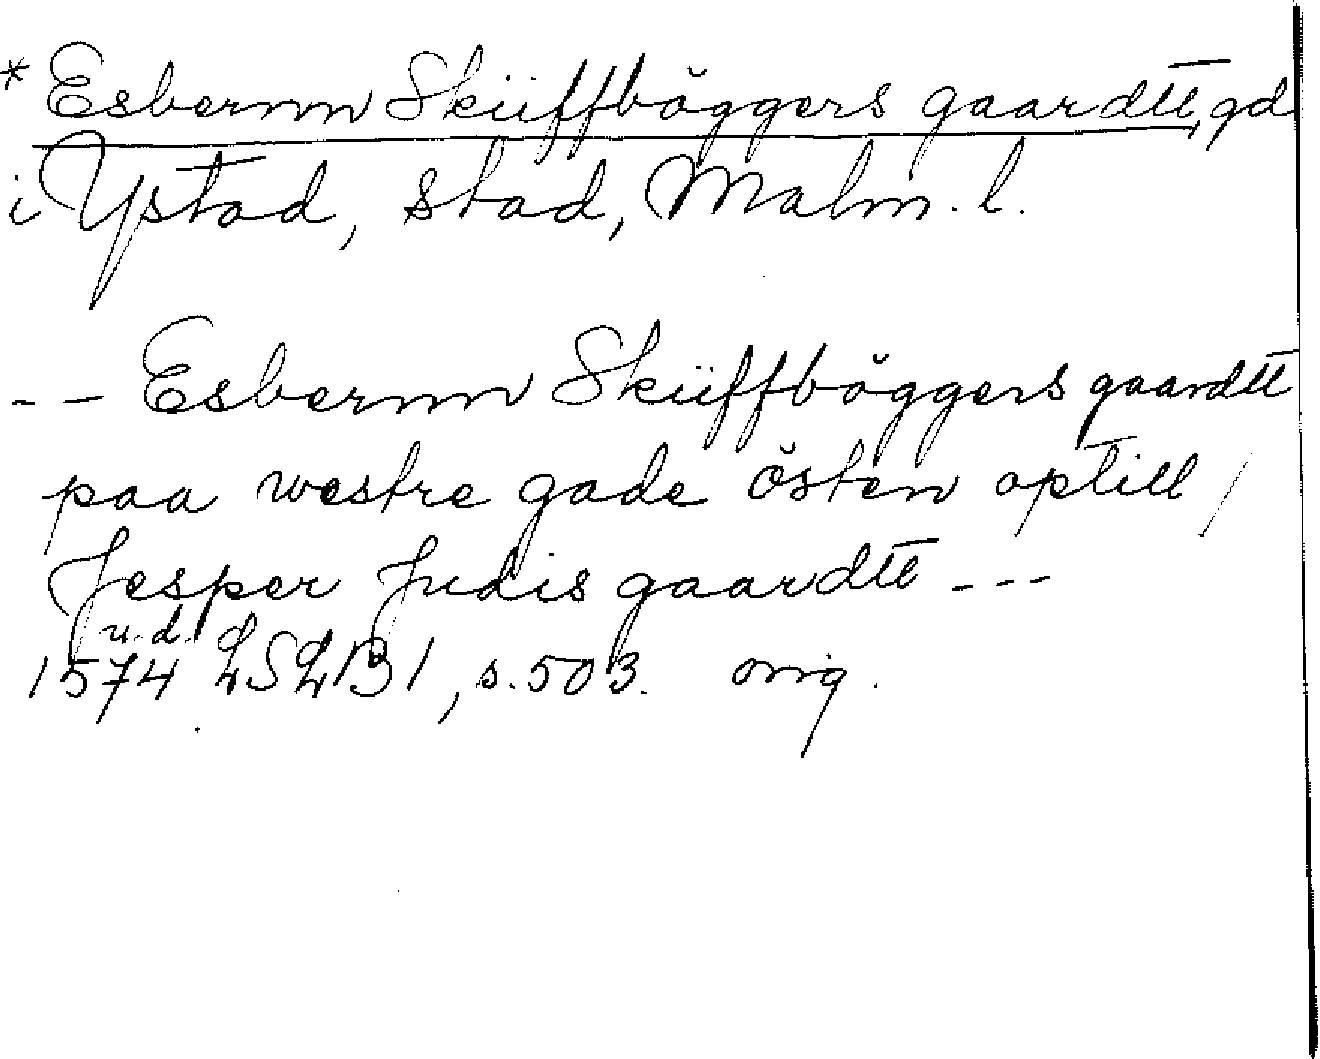 * Esbernn Sküffböggers gaardtt, gd
i Ystad, stad, Malm. l.
-- Esbernn Sküffböggers gaardtt
paa westre gade östen optill /
Jesper Judis gaardtt ---
u.d.
1574 LSLB 1, s. 503. orig.